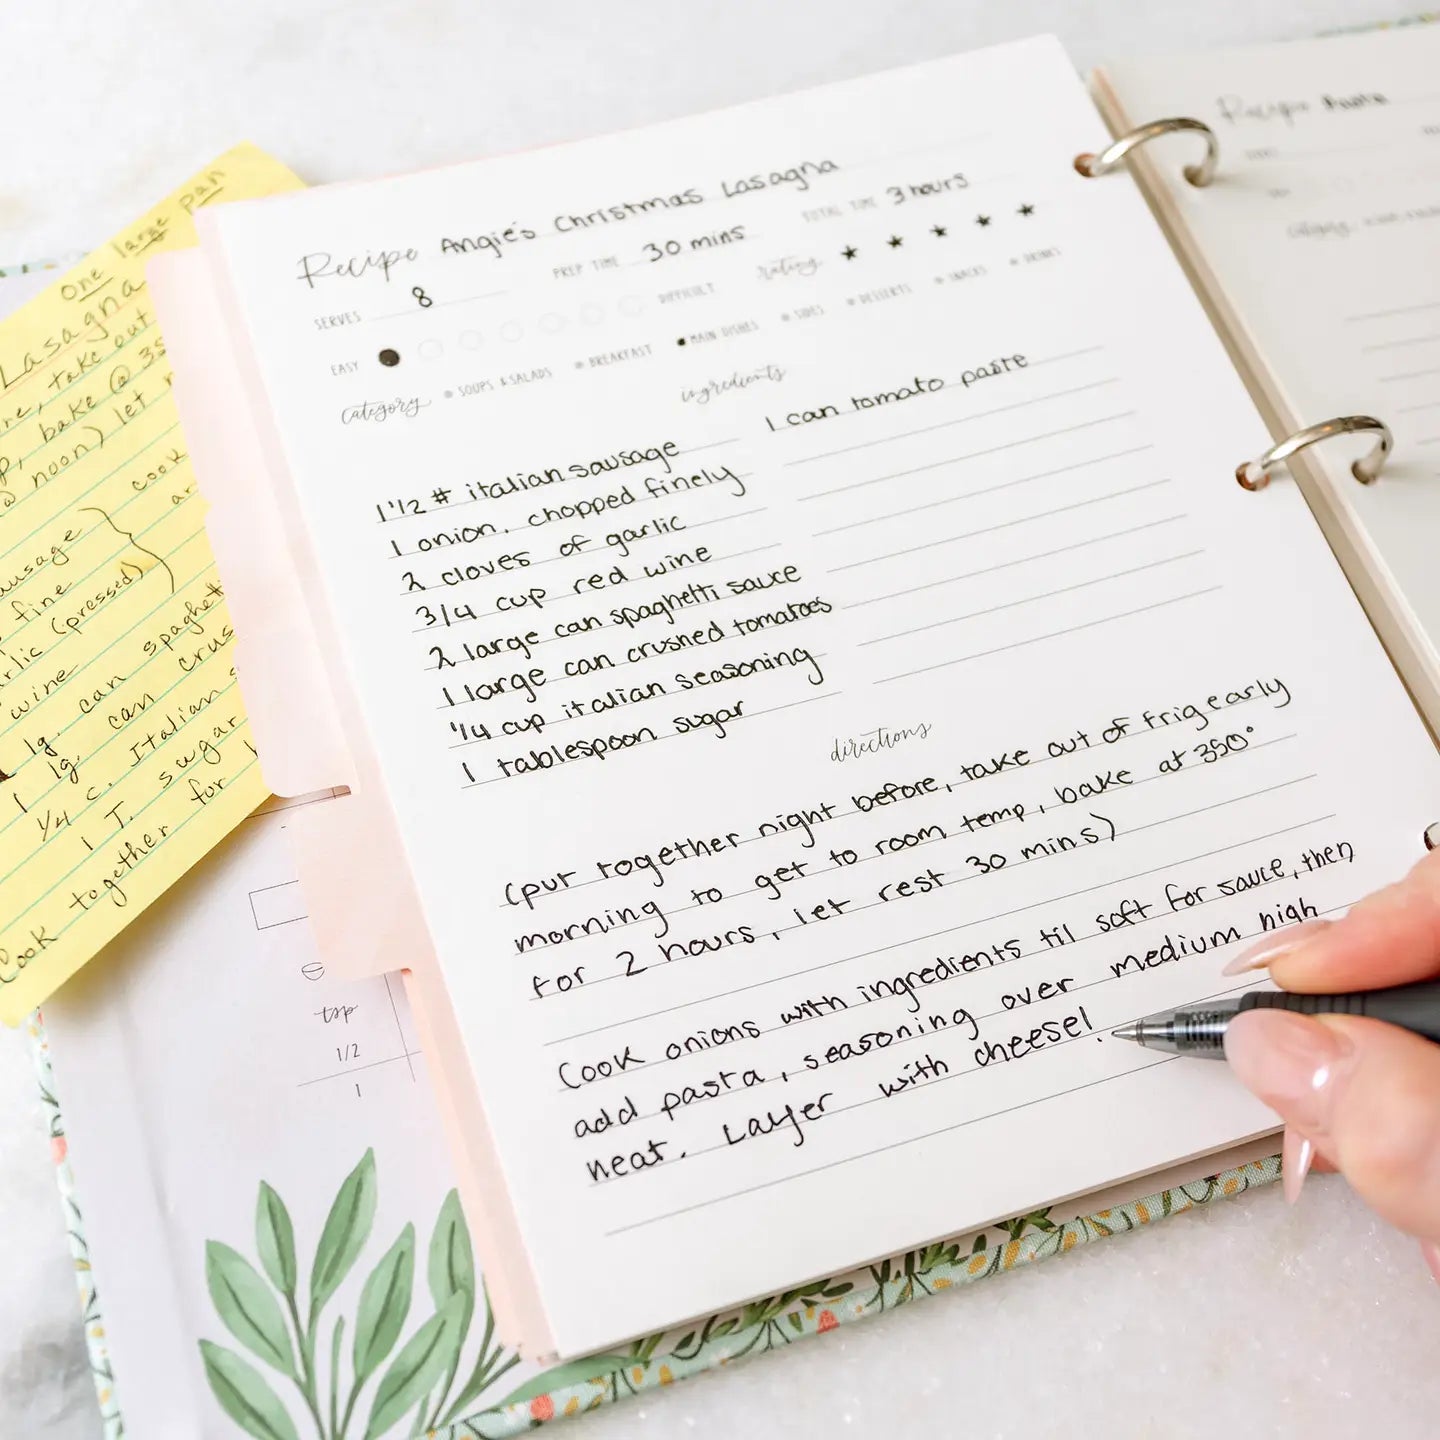 one large pan
Lasagna
take out
bake @
@ noon) let
cook
ausage
fine
(pressed)
wine
1 lg. can spaghett
1 lg. can crus
1/4 c. Italian
1 T. sugar
Cook together for
tsp
1/2
1
Recipe Angie's Christmas Lasagna
SERVES 8 PREP TIME 30 mins TOTAL TIME 3 hours
EASY DIFFICULT rating ★ ★ ★ ★ ★
category SOUPS & SALADS BREAKFAST MAIN DISHES SIDES DESSERTS SNACKS DRINKS
ingredients
1 1/2 # italian sausage
1 onion. chopped finely
2 cloves of garlic
3/4 cup red wine
2 large can spaghetti sauce
1 large can crushed tomatoes
1/4 cup italian seasoning
1 tablespoon sugar
1 can tomato paste
directions
(put together night before, take out of frig early
morning to get to room temp, bake at 350°
for 2 hours, let rest 30 mins)
Cook onions with ingredients til soft for sauce, then
add pasta, seasoning over medium high
heat. Layer with cheese!
Recipe Pasta